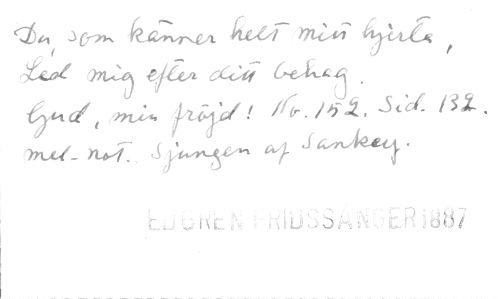 Du, som känner helt mitt hjerta,
Led mig efter ditt behag.
Gud, min fröjd! No. 152. Sid. 132.
mel-not. Sjungen af Sankey.
EDGREN FRIDSSÅNGER 1887